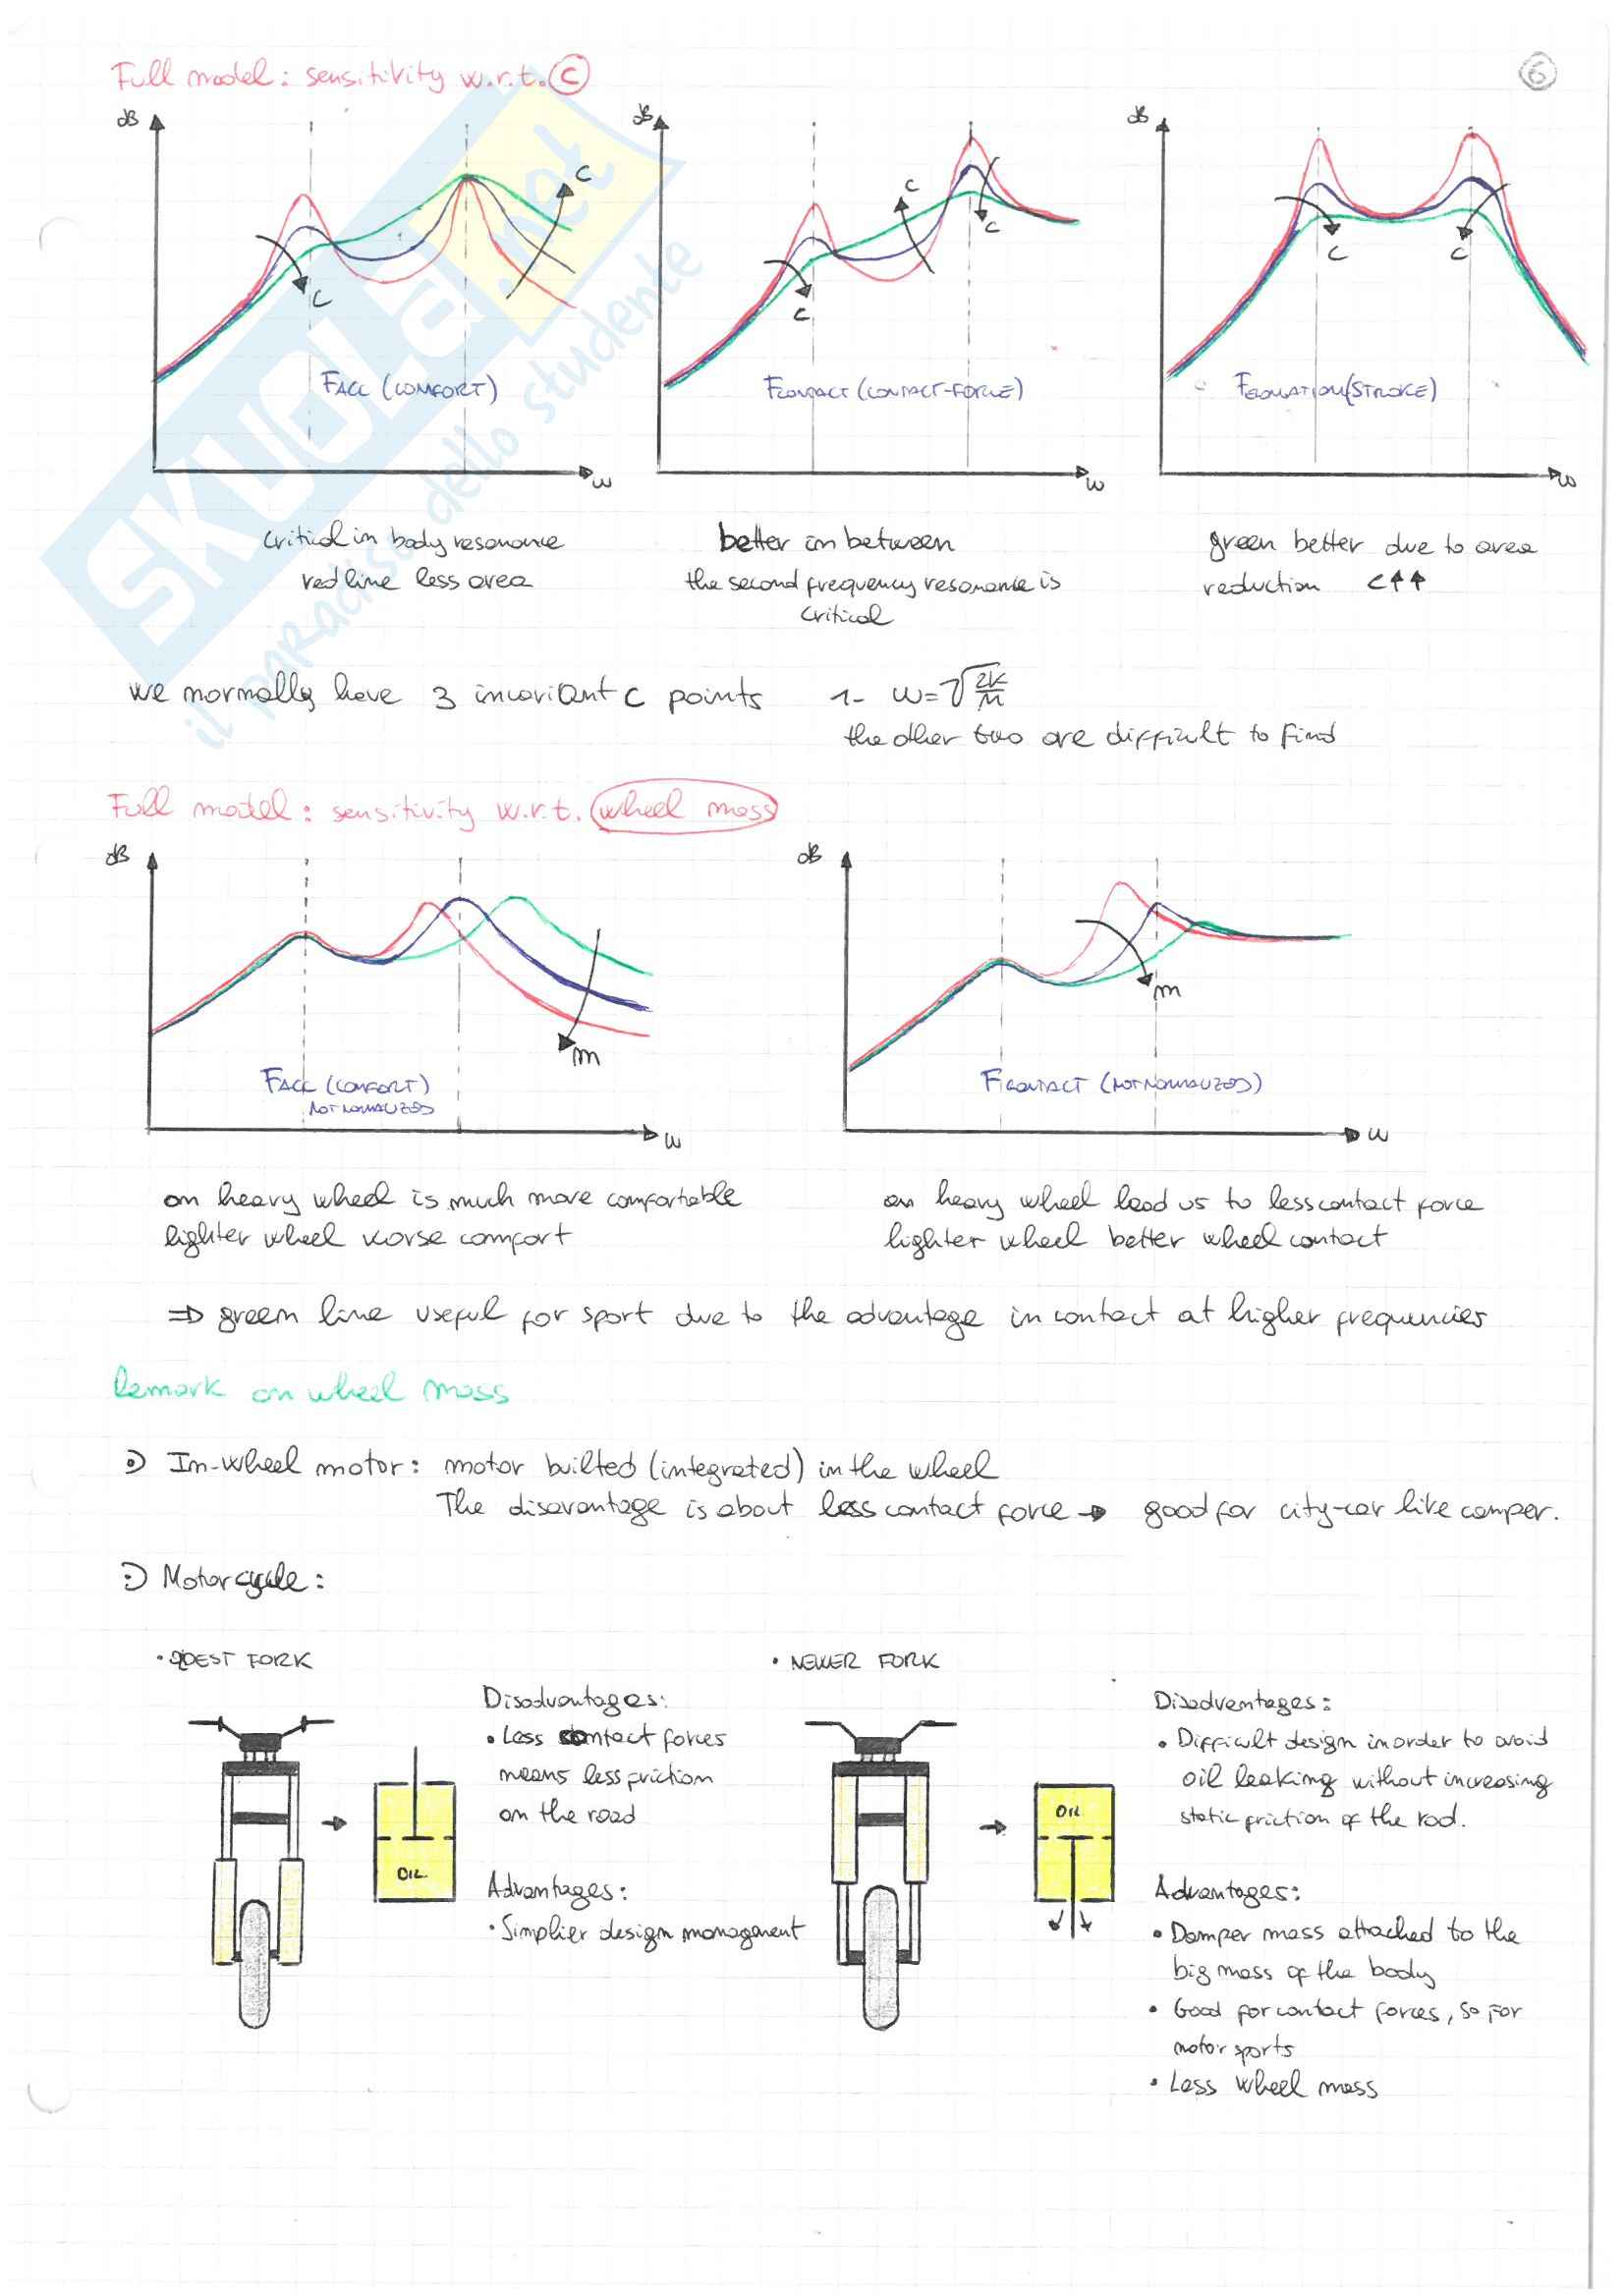 Full model: sensitivity w.r.t. c
6
dB
c
c
ω
FACC (COMFORT)
dB
c
c
c
ω
FCONTACT (CONTACT-FORCE)
dB
c
c
ω
FELONGATION (STROKE)
critical in body resonance
red line less area
better in between
the second frequency resonance is
critical
green better due to area
reduction c↑↑
SKUOLA.net
il paradiso dello studente
we normally have 3 invariant c points 1- ω=√2K/M
the other two are difficult to find
Full model: sensitivity w.r.t. wheel mass
dB
m
FACC (COMFORT)
NOT NORMALIZED
ω
dB
m
FCONTACT (NOT NORMALIZED)
ω
an heavy wheel is much more comfortable
lighter wheel worse comfort
an heavy wheel lead us to less contact force
lighter wheel better wheel contact
⇒ green line useful for sport due to the advantage in contact at higher frequencies
Remark on wheel mass
In-wheel motor: motor builted (integrated) in the wheel
The disavantage is about less contact force → good for city-car like camper.
Motorcycle:
• OLDEST FORK
OIL
Disadvantages:
• Less contact forces
means less friction
on the road
Advantages:
• Simplier design managment
• NEWER FORK
OIL
Disadventages:
• Difficult design in order to avoid
oil leaking without increasing
static friction of the rod.
Advantages:
• Damper mass attached to the
big mass of the body
• Good for contact forces, so for
motor sports
• Less wheel mass